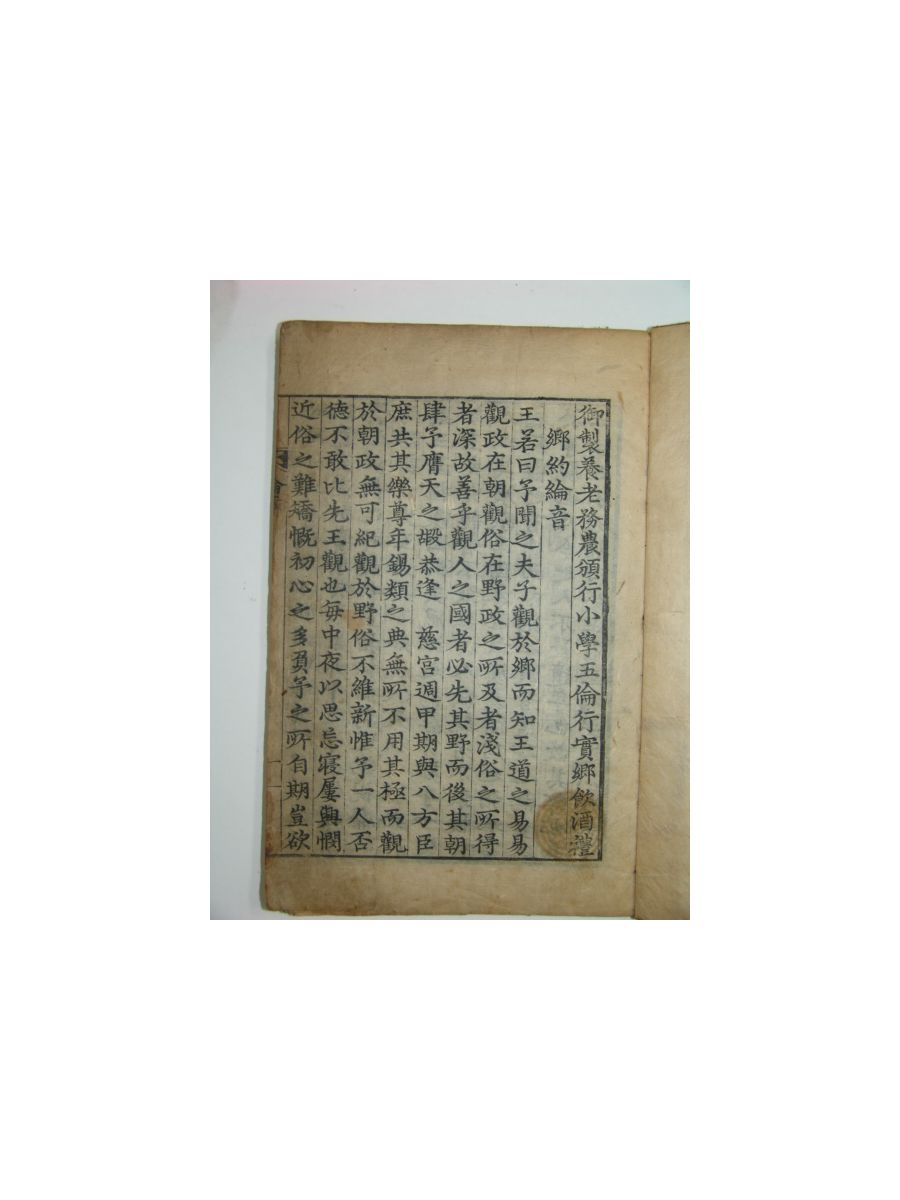 御製養老務農頒行小學五倫行實鄉飲酒禮
鄉約綸音
王若曰予聞之夫子觀於鄉而知王道之易易
觀政在朝觀俗在野政之所及者淺俗之所得
者深故善乎觀人之國者必先其野而後其朝
肆予膺天之嘏恭逢 慈宮週甲期與八方臣
庶共其樂尊年錫類之典無所不用其極而觀
於朝政無可紀觀於野俗不維新惟予一人否
德不敢比先王觀也每中夜以思忘寢屢興憫
近俗之難矯慨初心之多負予之所自期豈欲